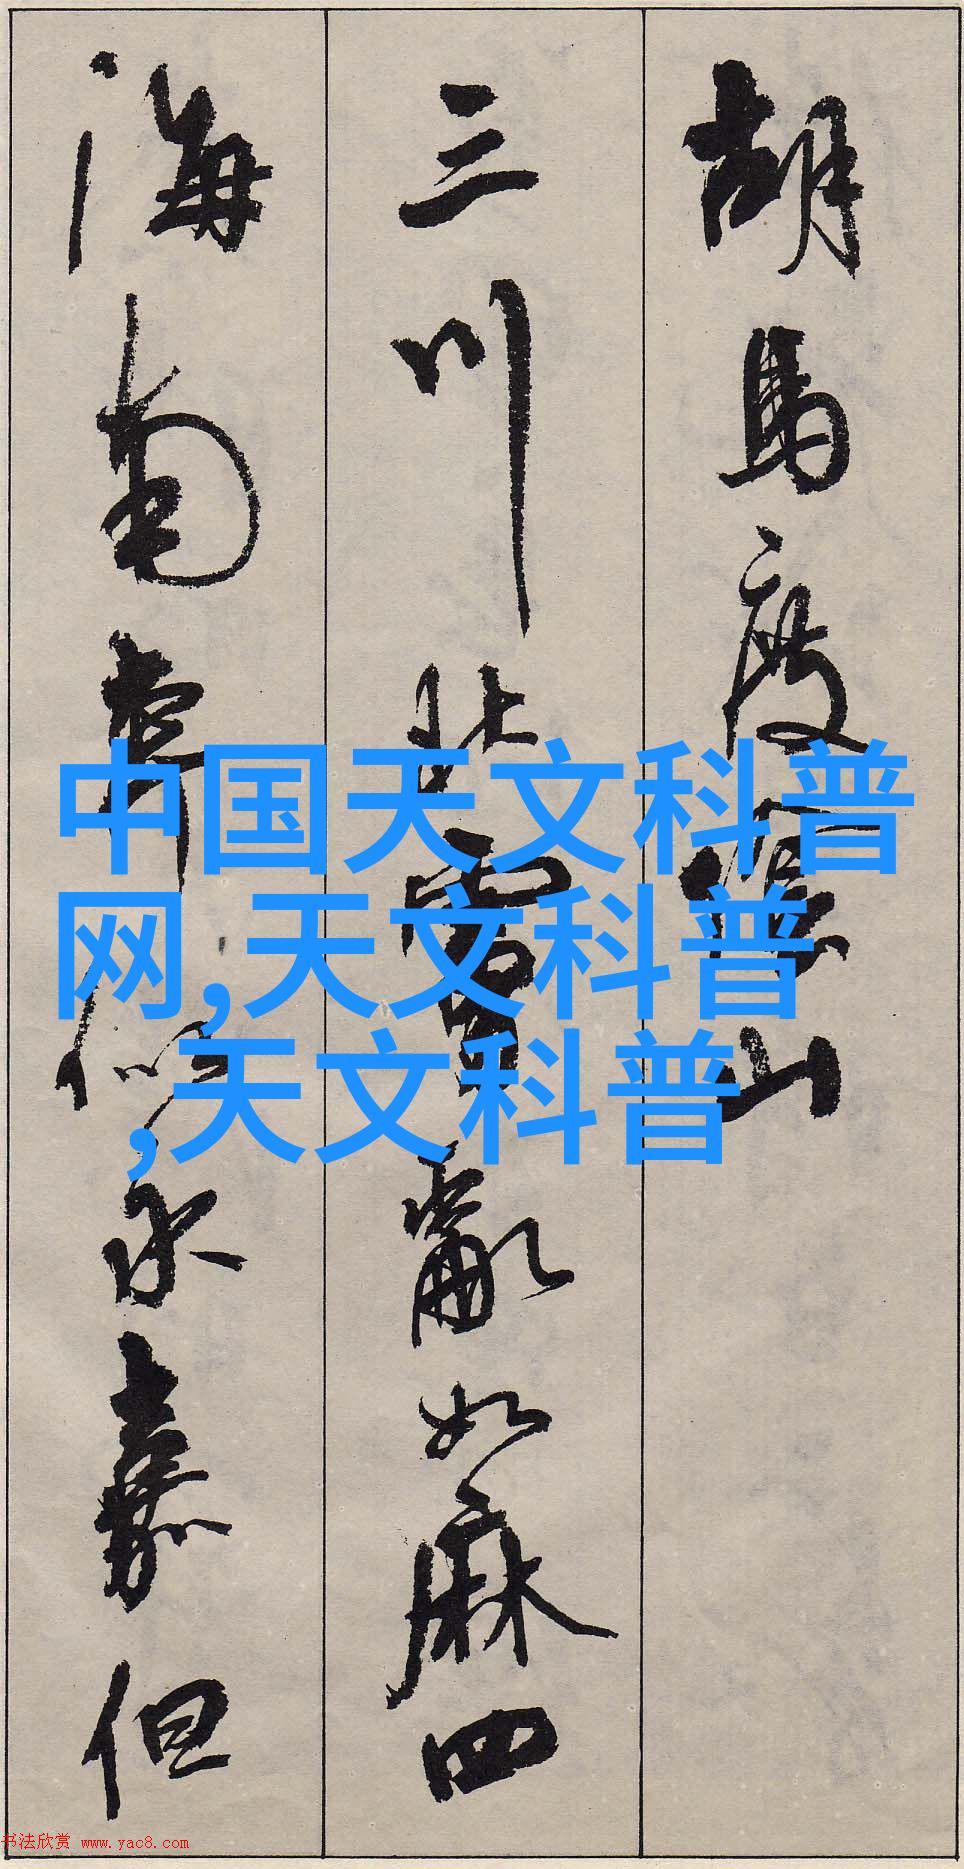 胡馬度陰山
三川北虜亂如麻四
海南奔似永嘉但
中国天文科普
网,天文科普
,天文科普
书法欣赏 www.yac8.com